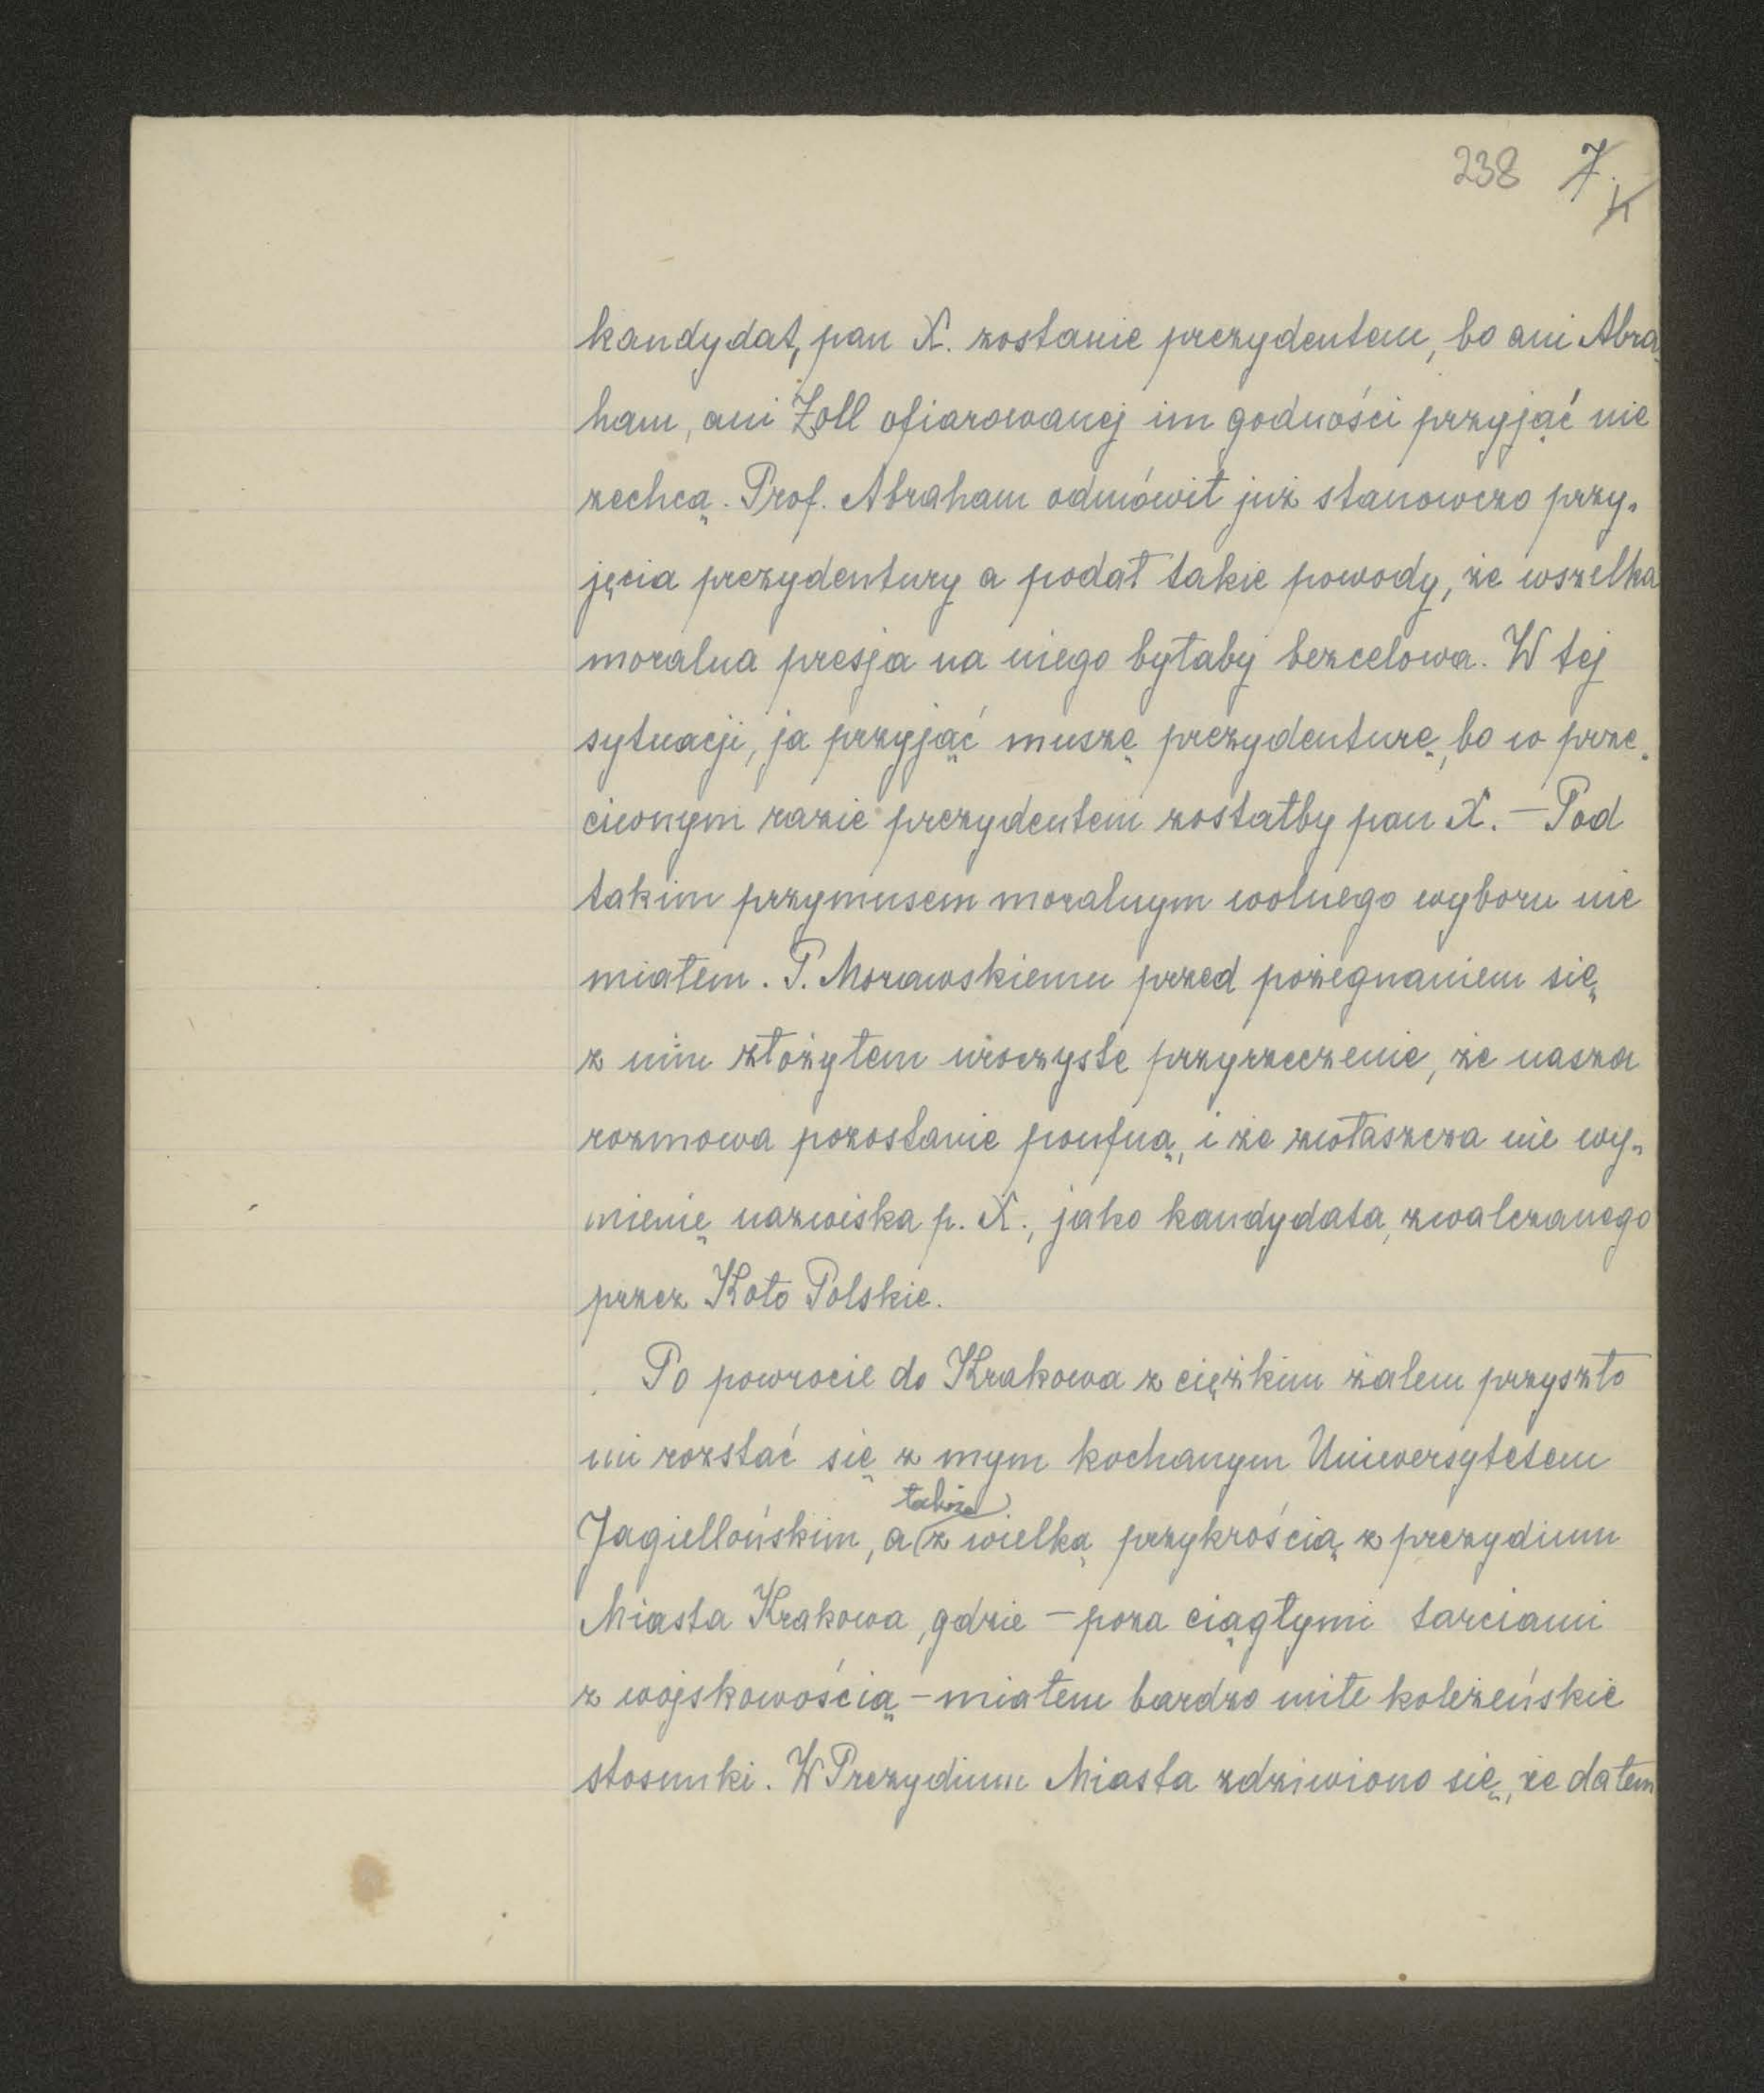 238 7.
kandydat, pan X. zostanie prezydentem, bo ani Abra„
ham, ani Zoll ofiarowanej im godności przyjąć nie
zechcą. Prof. Abraham odmówił już stanowczo przy„
jęcia prezydentury a podał takie powody, że wszelka
moralna presja na niego byłaby bezcelowa. W tej
sytuacji, ja przyjąć muszę prezydenturę, bo w prze„
ciwnym razie prezydentem zostałby pan X. — Pod
takim przymusem moralnym wolnego wyboru nie
miałem. P. Morawskiemu przed pożegnaniem się
z nim złożyłem uroczyste przyrzeczenie, że nasza
rozmowa pozostanie poufną, i że zwłaszcza nie wy„
mienię nazwiska p. X., jako kandydata, zwalczanego
przez Koło Polskie.
Po powrocie do Krakowa z ciężkim żalem przyszło
mi rozstać się z mym kochanym Uniwersytetem
także
Jagiellońskim, a z wielką przykrością z prezydium
Miasta Krakowa, gdzie — poza ciągłymi tarciami
z wojskowością — miałem bardzo miłe koleżeńskie
stosunki. W Prezydium Miasta zdziwiono się, że dałem